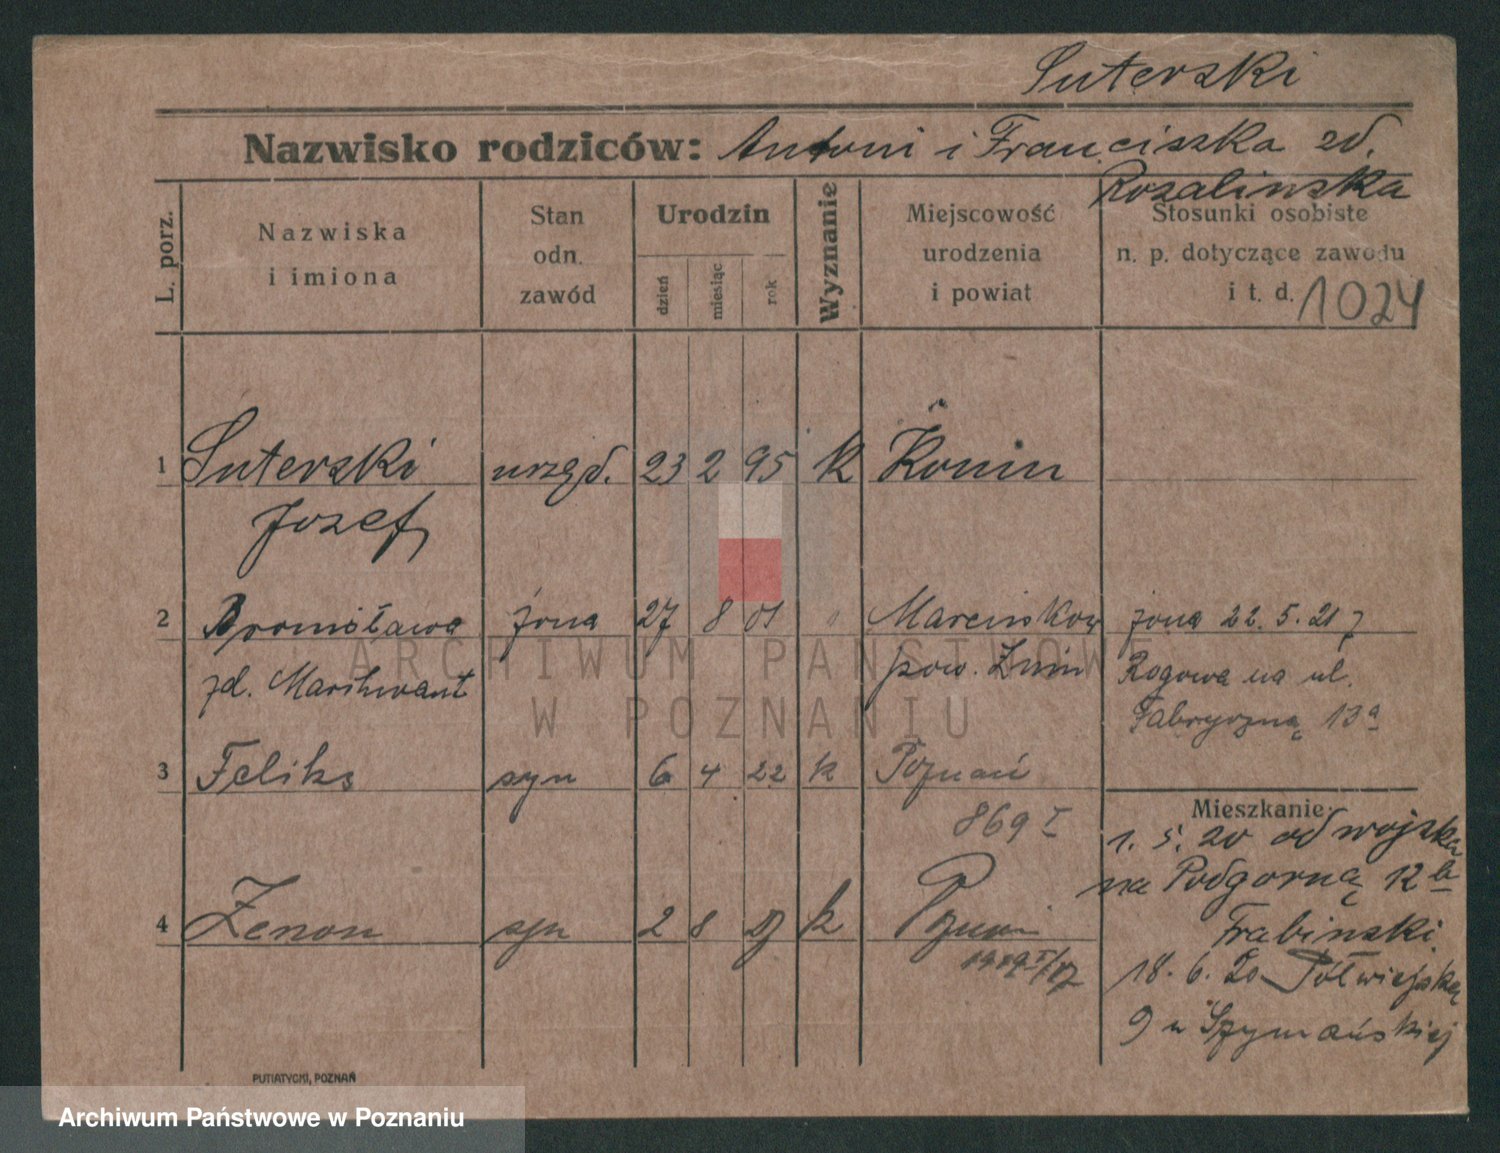 Suterski
Nazwisko rodziców: Antoni i Franciszka zd.
Rozalinska
L. porz.
Nazwiska
i imiona
Stan
odn.
zawód
Urodzin
dzień
miesiąc
rok
Wyznanie
Miejscowość
urodzenia
i powiat
Stosunki osobiste
n. p. dotyczące zawodu
i t. d. 1024
1 Suterski urzęd. 23 2 95 k Konin
Jozef
2 Bronisława żona 27 8 01 żona 22. 5. 21 z
zd. pow. Żnin Rogowa na ul.
Fabryczną 13a
3 Feliks syn 6 4 22 k Poznań
869 I
Mieszkanie:
1. 5. 20 od wojska
na Podgorną 12b
4 Zenon syn 2 8 k
Trabinski
18. 6. 20 Półwiejską
9 u Szymańskiej
PUTIATYCKI, POZNAŃ
ARCHIWUM PAŃSTWOWE
W POZNANIU
Archiwum Państwowe w Poznaniu